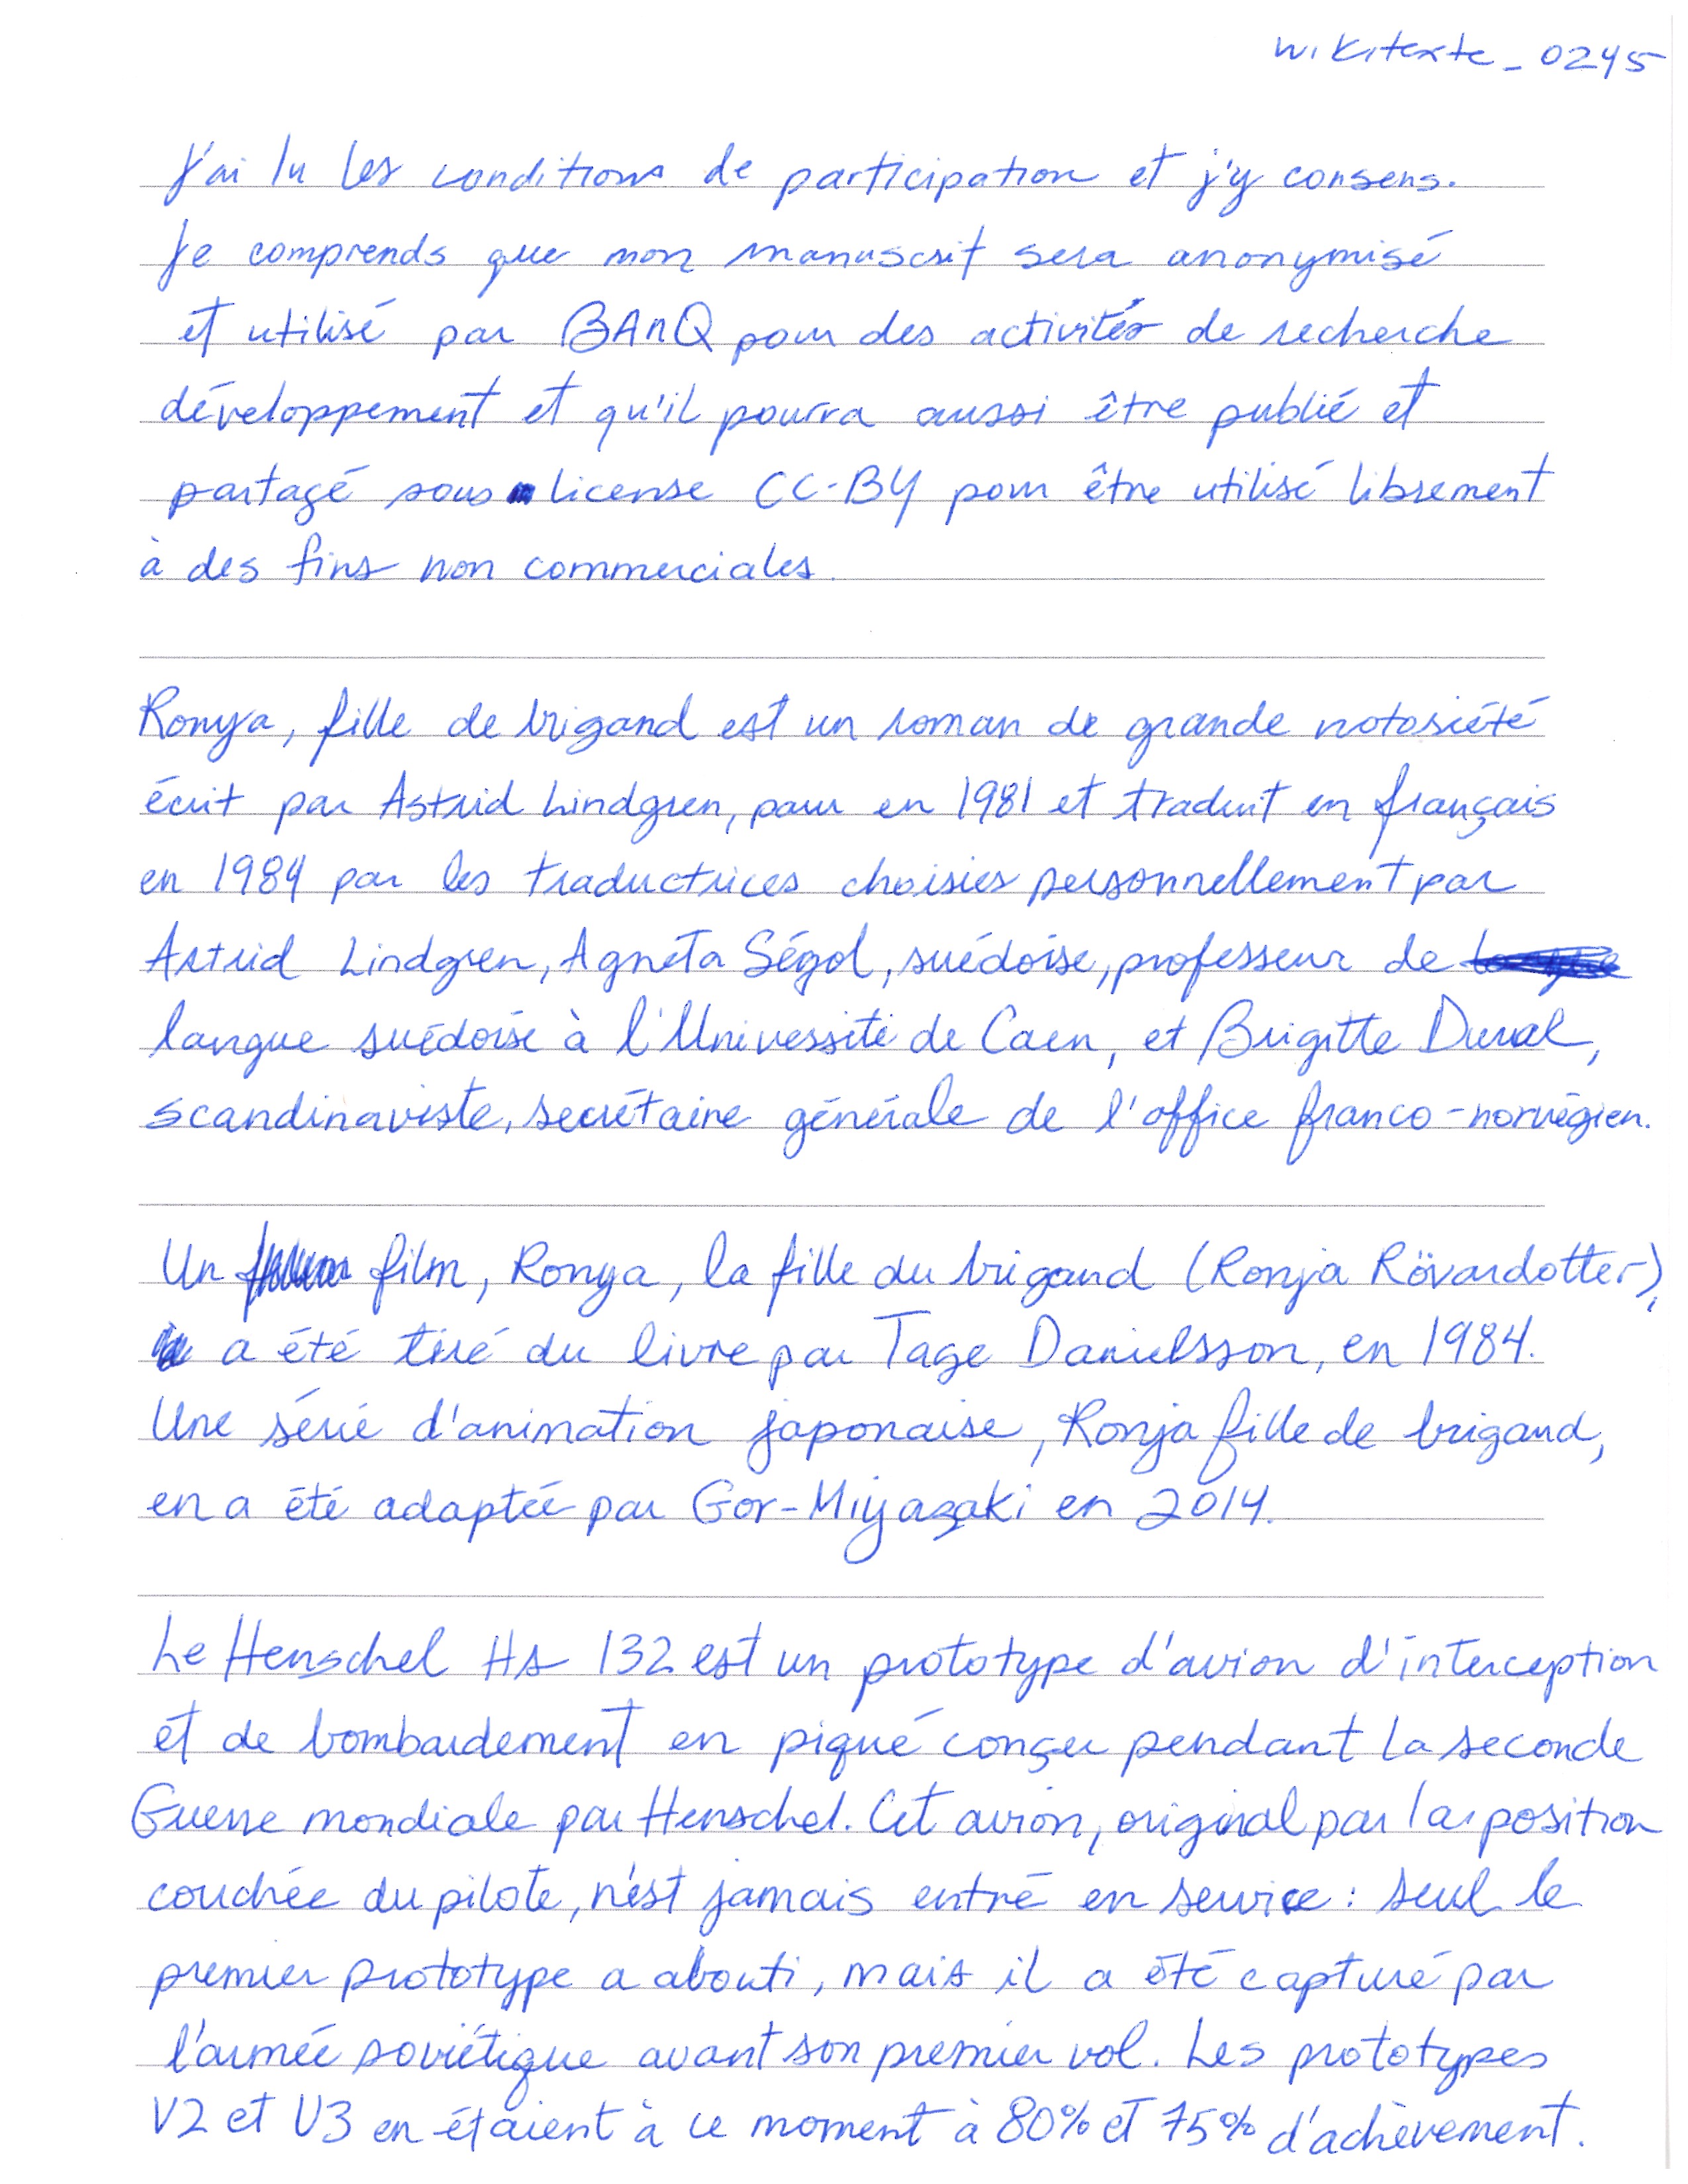 wikitexte_0245
J'ai lu les conditions de participation et j'y consens.
Je comprends que mon manuscrit sera anonymisé
et utilisé par BAnQ pour des activités de recherche
développement et qu'il pourra aussi être publié et
partagé sous license CC-BY pour être utilisé librement
à des fins non commerciales.
Ronya, fille de brigand est un roman de grande notosiété
écrit par Astrid Lindgren, paru en 1981 et traduit en français
en 1984 par les traductrices choisies personnellement par
Astrid Lindgren, Agneta Ségol, suédoise, professeur de
langue suédoise à l'Université de Caen, et Brigitte Duval,
scandinaviste, secrétaire générale de l'office franco-norvégien.
Un film, Ronya, la fille du brigand (Ronja Rövardotter),
a été tiré du livre par Tage Danielsson, en 1984.
Une série d'animation japonaise, Ronja fille de brigand,
en a été adaptée par Gor-Miyazaki en 2014.
Le Henschel Hs 132 est un prototype d'avion d'interception
et de bombardement en piqué conçu pendant la seconde
Guerre mondiale par Henschel. Cet avion, original par la position
couchée du pilote, n'est jamais entré en service : seul le
premier prototype a abouti, mais il a été capturé par
l'armée soviétique avant son premier vol. Les prototypes
V2 et V3 en étaient à ce moment à 80% et 75% d'achèvement.